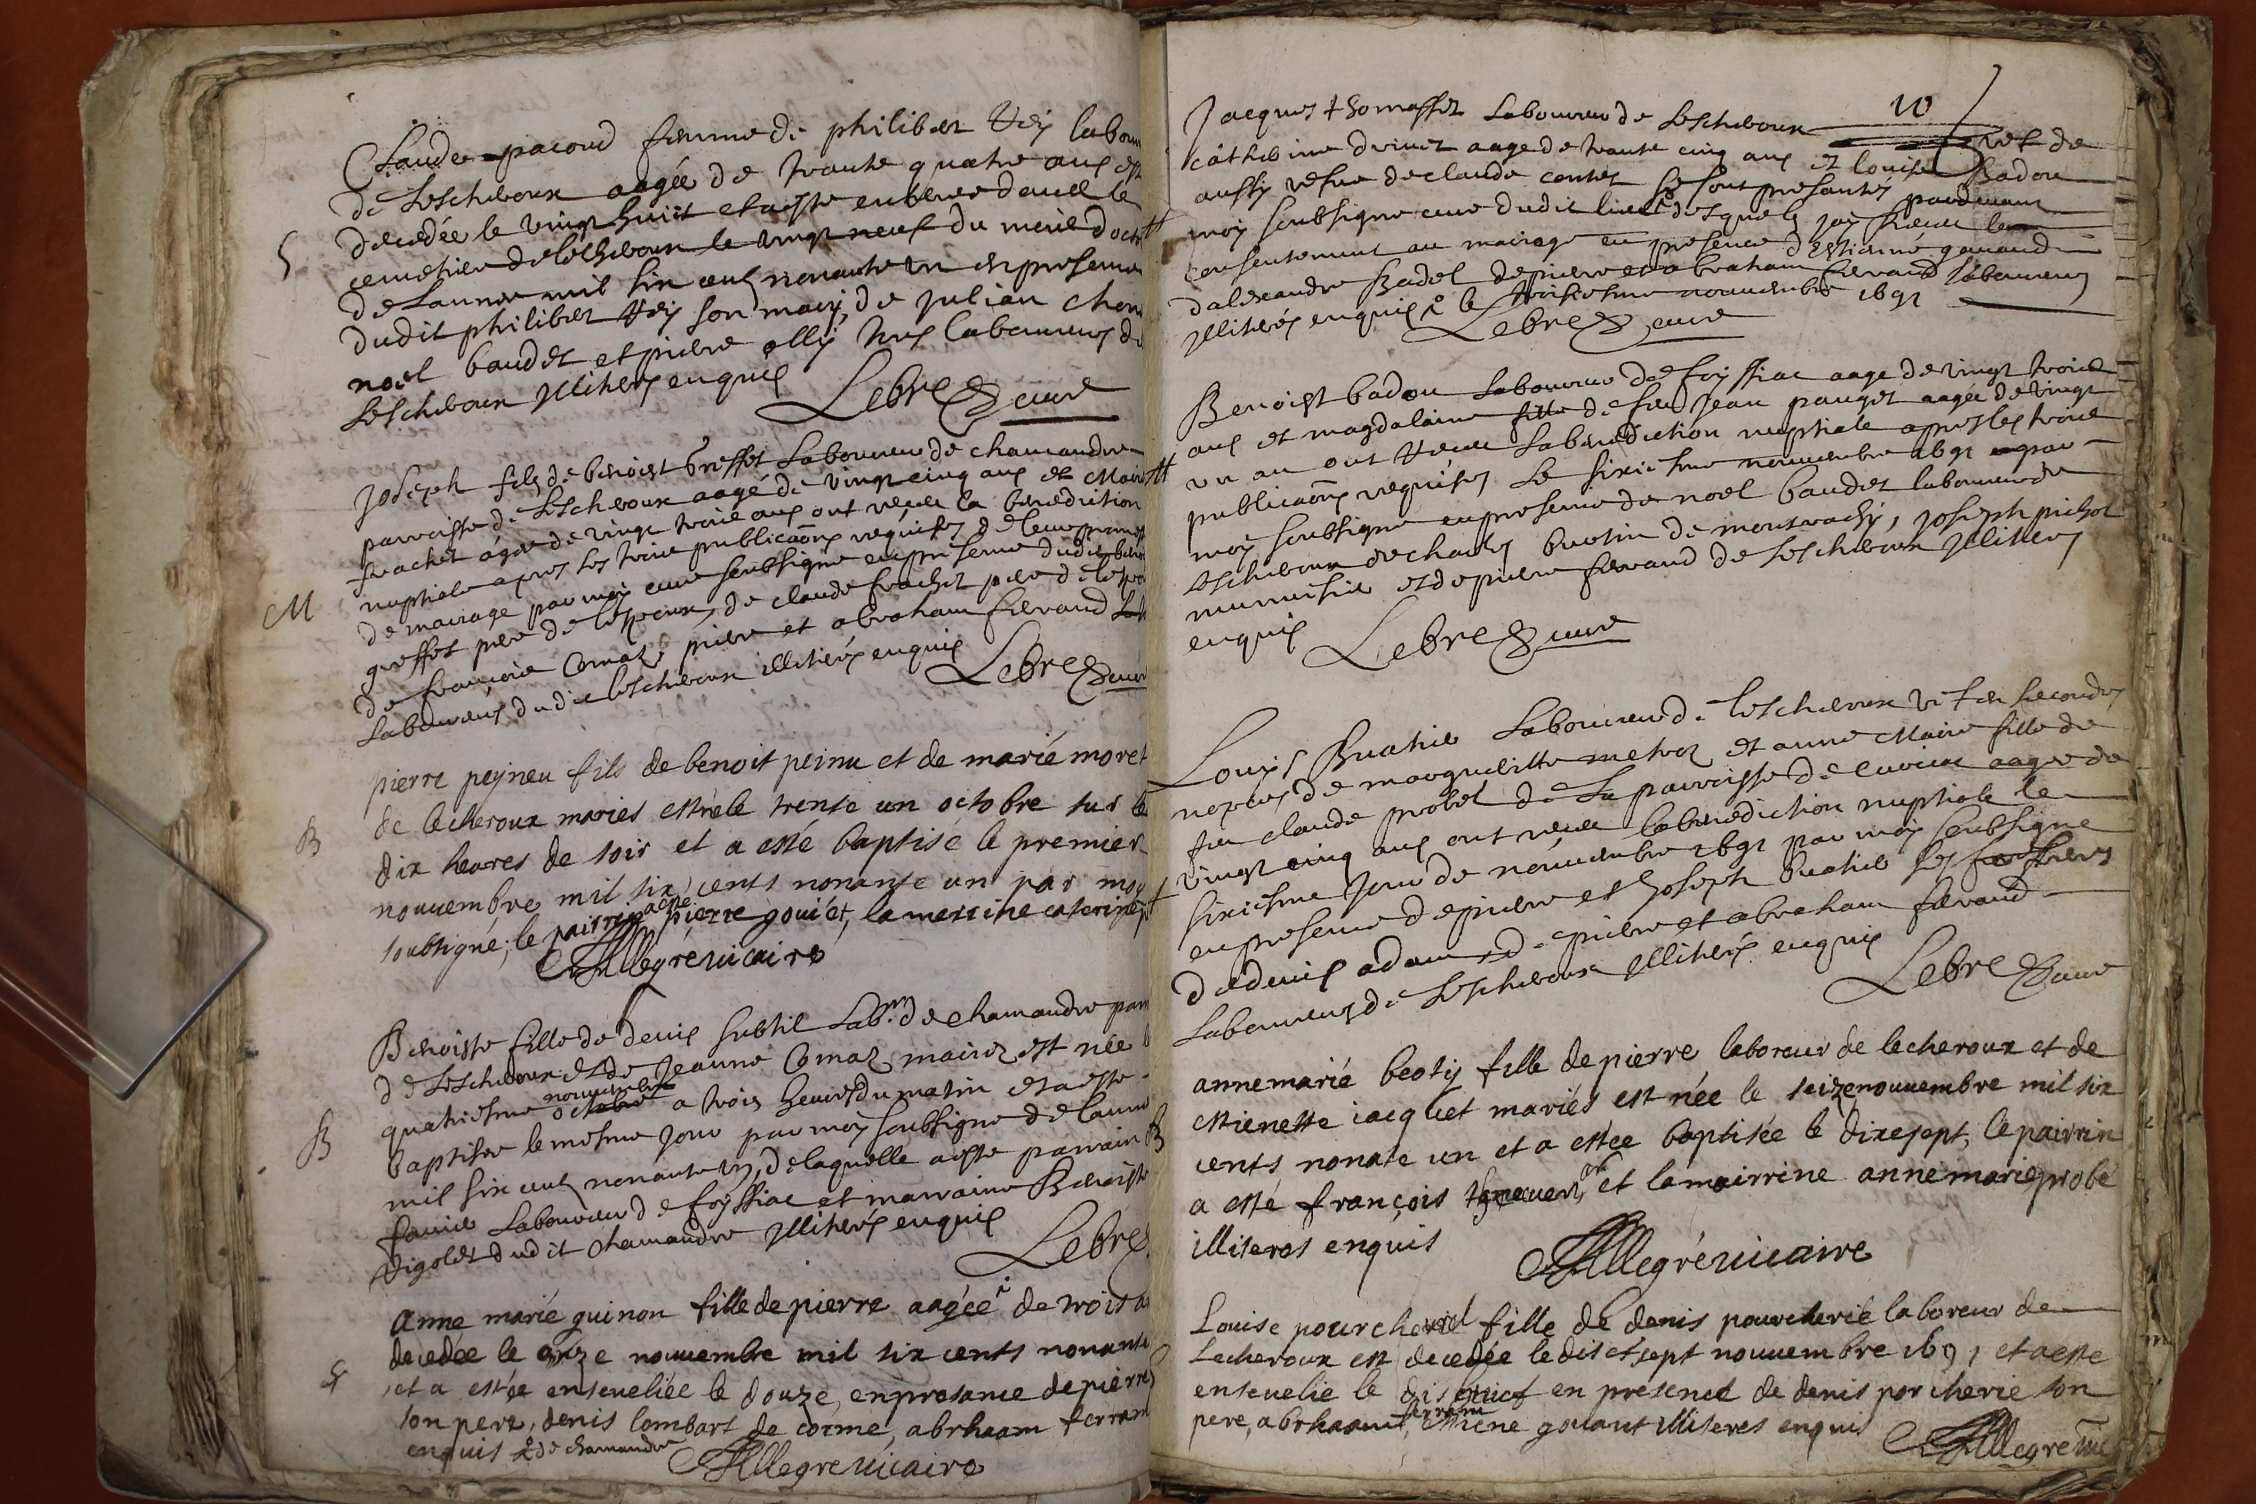 Claude pacoud femme de philibert Vey labou
de Lescheroux aagée de trante quatre ans est
decedée le vingt huict et a esté enterree dans le
S
cemetiere de Lescheroux le vingt neuf du mois d'octo
de Lannee mil six cens nonante un en presence
dudit philibert Vey son mary, de Julian Chon
noel baudet et pierre olly tous laboureurs de
Lescheroux illiteres enquis
Lebre curé
Joseph fils de benoist Greffet Laboureur de chamandre
parroisse de Lescheroux aagé de vingt cinq ans et Marie
frachet agee de vingt trois ans ont receu la benediction
nuptiale apres les trois publicaons requises de leurs promes
M
de mariage par moy curé soubsigné en presence dudit benoi
greffet pere de lespoux, de claude frachet pere de lespou
de françois Comaz, pierre et abraham ferrand
Laboureurs dudit Lescheroux illiterés enquis
Lebre curé
pierre peyneu fils de benoit peinu et de marié moret
de lecheroux mariés est né le trente un octobre sur le
B
dix heures de soir et a esté baptisé le premier
nouuembre mil six cents nonante un par moy
soubsigné; le pairrin a été pierre gouiet, la merrine caterine
Allegré uicaire
Benoiste fille de denis subtil Labr. de chamandre parr
de Lescheroux et de Jeanne Comaz mariez est née le
quatriesme octobre nouuembre a trois heures du matin et a esté
B
baptisee le mesme jour par moy soubsigné de lanne
mil six cens nonante un, de laquelle a esté parrain
Laboureur de foyssiac et marraine Benoiste
Vigolet dudit Chamandre illiterés enquis
Lebre
Anne marié guinon fille de pierre aagée de trois
decedée le onze nouuembre mil six cents nonante
S
et a estée enseueliée le douze, en presance de pierre
son pere, denis lombart de corme, abrhaam ferram
enquis de chamandre
Allegre uicaire
10
Jacques thomasset Laboureur de Lescheroux vef de
Cathérine druiet aage de trante cinq ans et louise Badou
aussy vefue de claude contet se sont presantés pardeuant
M
moy soubsigné curé dudit lieu desquels jay receu le
consentement au mariage en presence d'Estienne gauand
d'alexandre Badel de pierre et abraham ferrand laboureurs
illiterés enquis le troisiesme nouuembre 1691
Lebre curé
Benoist badou Laboureur de foyssiac aage de vingt trois
ans et magdalaine fille de feu Jean pauget aagée de vingt
M
un an ont receu la benediction nuptiale apres les trois
publicaons requises le sixiesme nouuembre 1691 par
moy soubsigné en presence de noel baudet laboureur de
Lescheroux de charles buatin de montrachy, joseph pichot
et de pierre ferrand de Lescheroux illiteres
enquis
Lebre curé
Louys Buatie Laboureur de Lescheroux vef en secondes
nopces de marguerite metroz et anne Marie fille de
feu claude probet de La parroisse de Curciat aagée de
vingt cinq ans ont receu la benediction nuptiale le
sixiesme jour de nouuembre 1691 par moy soubsigné
en presence de pierre et Joseph Buatie ses freres
de denis adam de pierre et abraham ferrand
Laboureurs de Lescheroux illiterés enquis
Lebre curé
annemarié beoty fille de pierre laboreur de lecheroux et de
estienette iacquet mariés est née le seize nouuembre mil six
B
cents nonate un et a estée baptisée le dixesept, le pairrin
a esté françois et la mairrine anne marie probe
illiteres enquis
Allegré uicaire
Louise pourcherie fille de denis pourcherie laboreur de
Lecheroux est decedée le diset sept nouuembre 1691 et a esté
enseuelie le en présence de denis porcherie son
pere, abrhaam ferram, estiene gouant illiteres enquis
Allegre uic